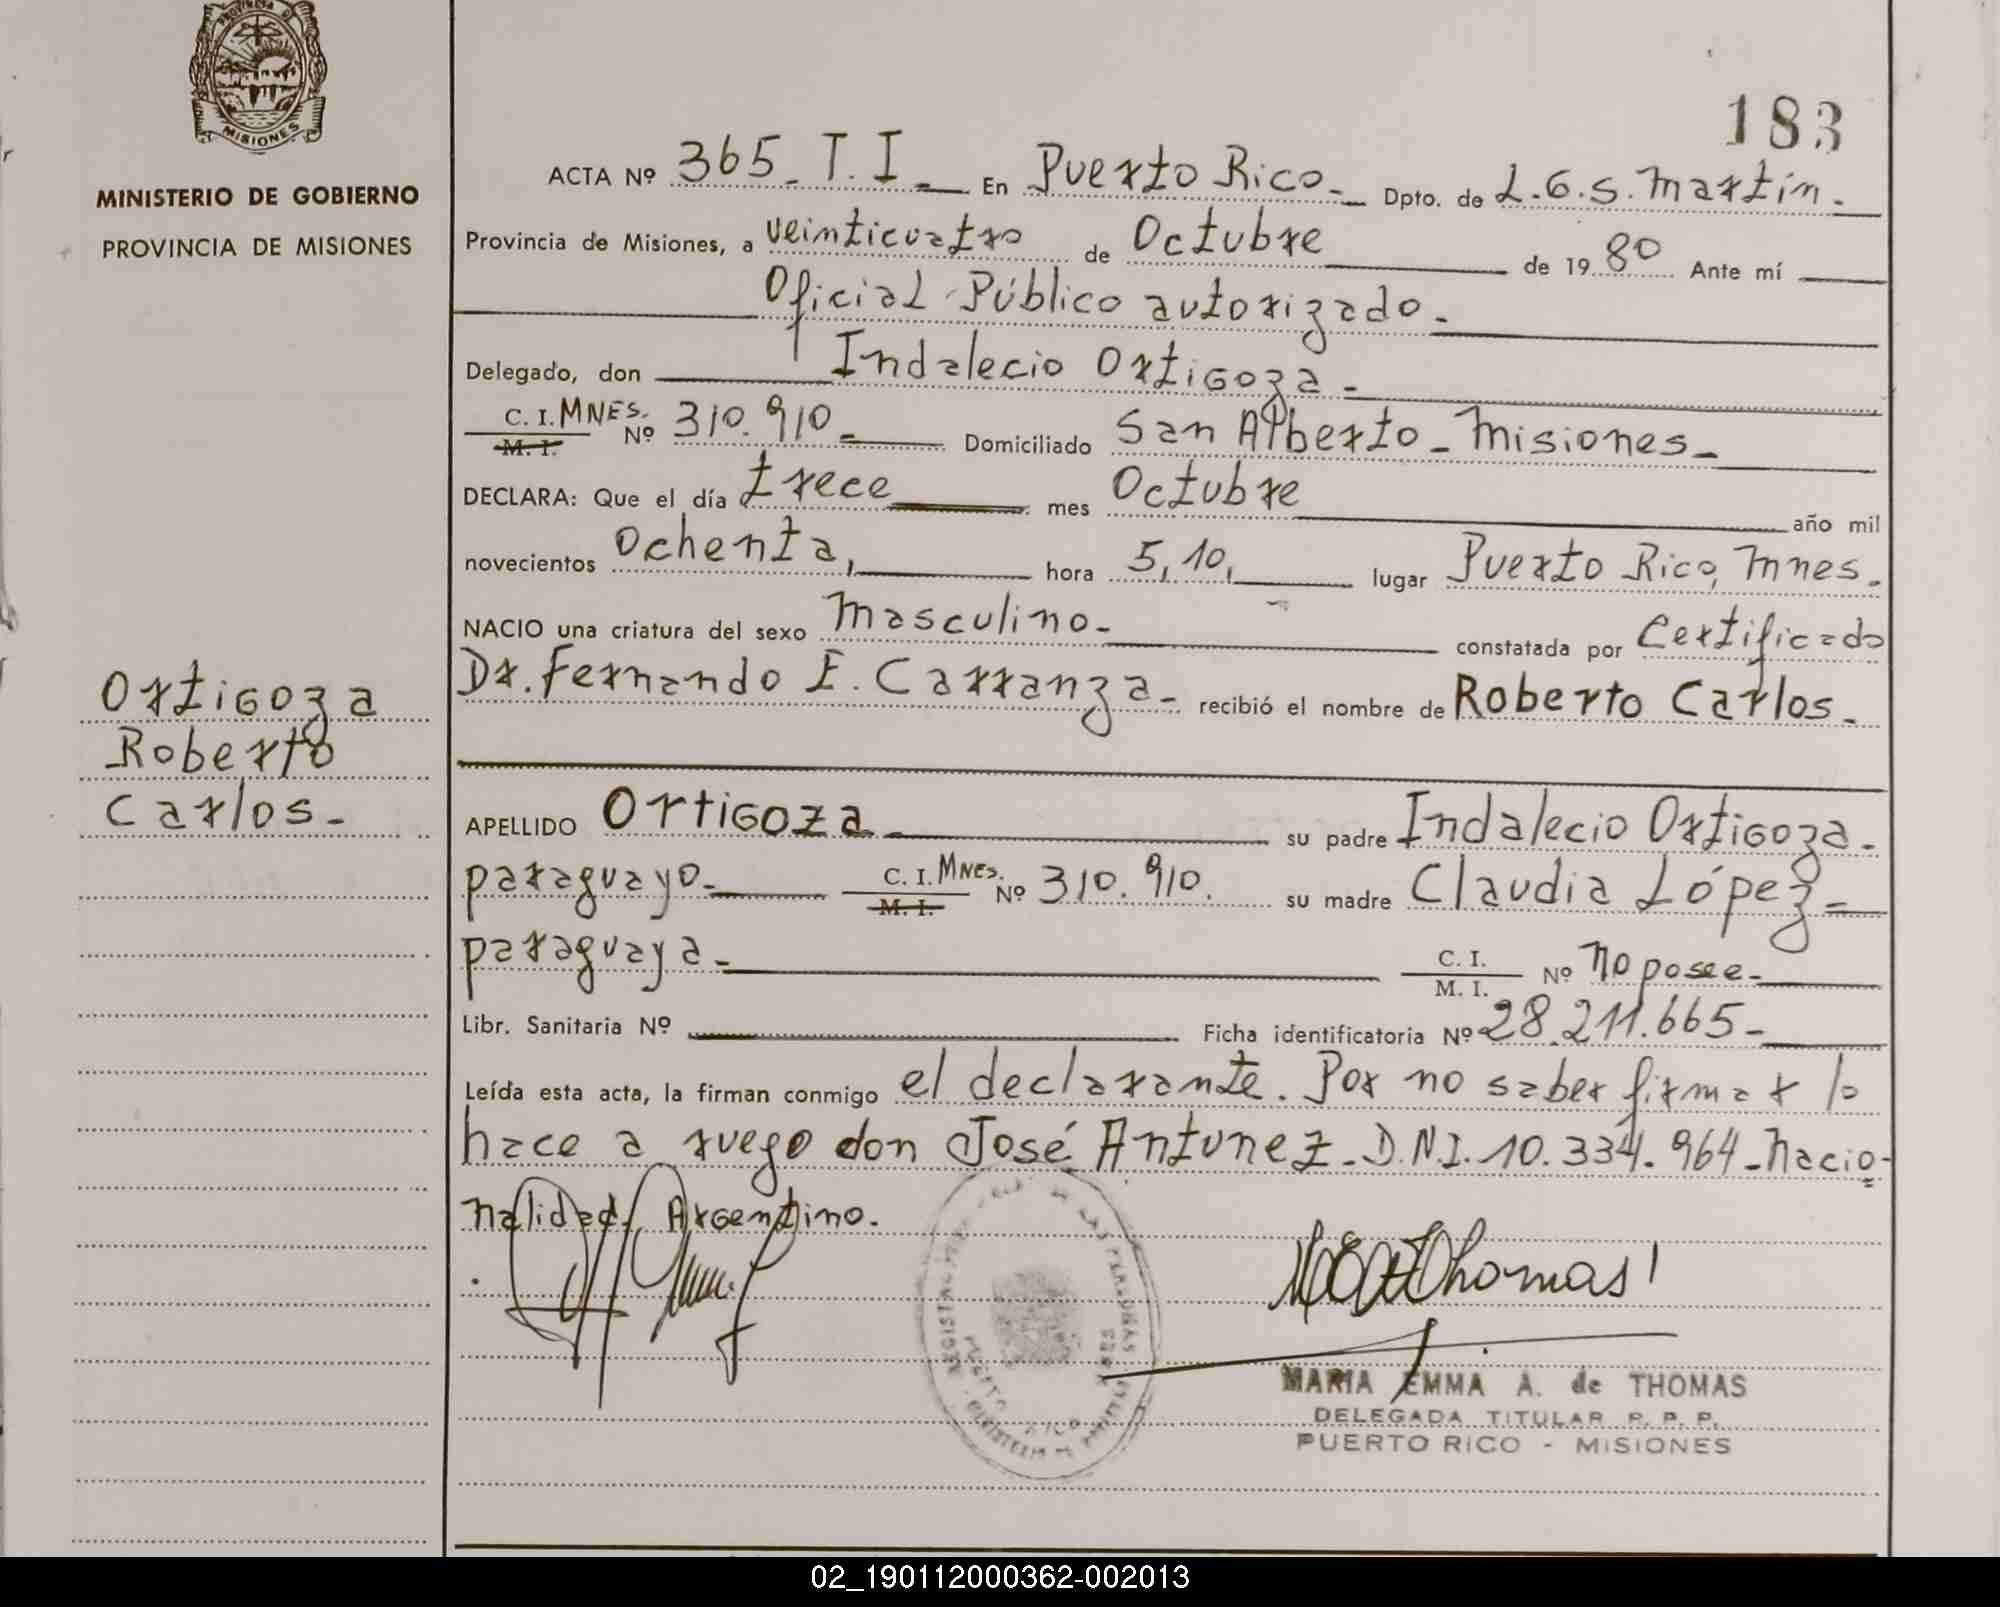 MISIONES
MINISTERIO DE GOBIERNO
PROVINCIA DE MISIONES
183
ACTA Nº 365_T.I_ En Puerto Rico_ Dpto. de L.G.S.Martín_
Provincia de Misiones, a veinticuatro de Octubre de 19 80 Ante mí
Oficial Público autorizado_
Delegado, don Indalecio Ortigoza_
C. I. MNES. Nº 310.910_ Domiciliado San Alberto_Misiones_
M. I.
DECLARA: Que el día trece mes Octubre año mil
novecientos Ochenta, hora 5,10, lugar Puerto Rico, Mnes.
NACIO una criatura del sexo masculino_ constatada por Certificado
Dr. Fernando E. Carranza_ recibió el nombre de Roberto Carlos_
Ortigoza
Roberto
Carlos_
APELLIDO Ortigoza su padre Indalecio Ortigoza_
paraguayo_ C. I. MNES. Nº 310.910. su madre Claudia López_
M. I.
paraguaya_ C. I. Nº no posee_
M. I.
Libr. Sanitaria Nº Ficha identificatoria Nº 28.211.665_
Leída esta acta, la firman conmigo el declarante. Por no saber firmar lo
hace a ruego don José Antunez_D.N.I.10.334.964_nacio-
nalidad Argentino.
Thomas
MARIA EMMA A. de THOMAS
DELEGADA TITULAR R. P. P.
PUERTO RICO - MISIONES
02_190112000362-002013